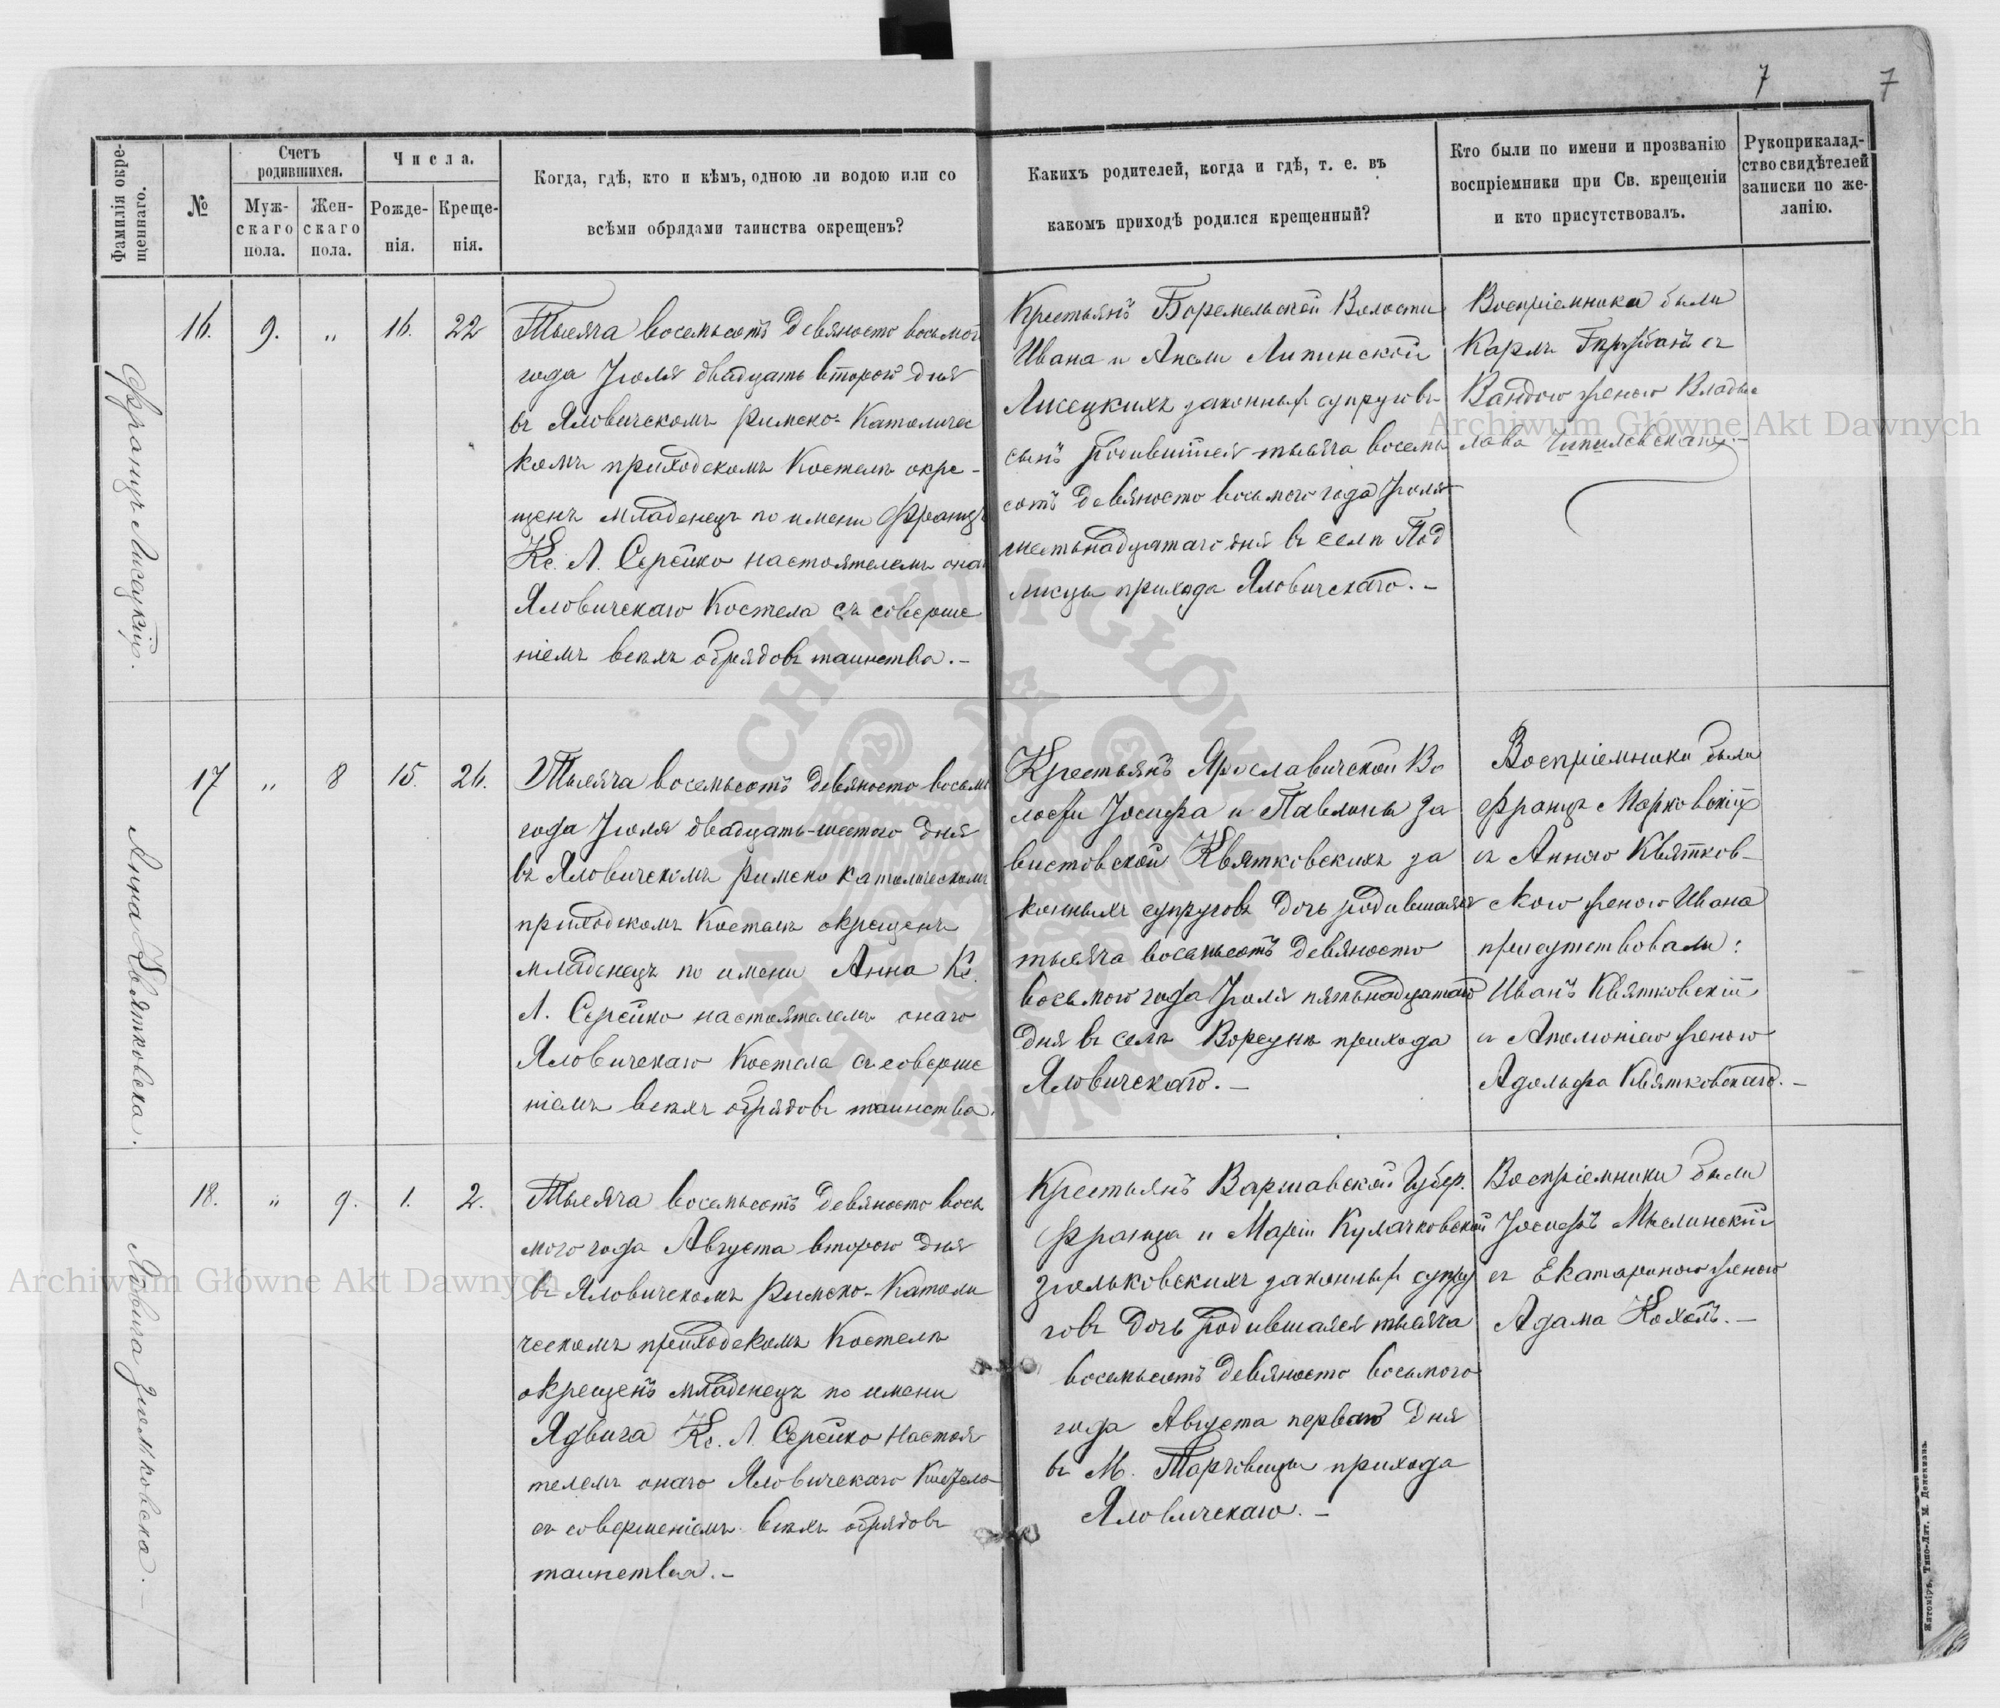 7
7
Фамилія окре-
щеннаго.
№
Счетъ
родившихся.
Муж-
скаго
пола.
Жен-
скаго
пола.
Числа.
Рожде-
нія.
Креще-
нія.
Когда, гдѣ, кто и кѣмъ, одною ли водою или со
всѣми обрядами таинства окрещенъ?
Какихъ родителей, когда и гдѣ, т. е. въ
какомъ приходѣ родился крещенный?
Кто были по имени и прозванію
воспріемники при Св. крещеніи
и кто присутствовалъ.
Рукоприклад-
ство свидѣтелей
записки по же-
ланію.
Францъ Лисецкій.
16. 9. „ 16. 22
Тысяча восемьсотъ девяносто восьмого
года Іюля двадцать второй дня
въ Яловичскомъ Римско-Католичес
комъ приходскомъ Костелѣ окре-
щенъ младенецъ по имени Францъ
Кс. Л. Серейко настоятелемъ онаго
Яловичскаго Костела съ соверше
ніемъ всѣхъ обрядовъ таинства.-
Крестьянъ Боремельской Волости
Ивана и Анели Липинской
Лисецкихъ законных супруговъ
сынъ родившійся тысяча восемь
сотъ девяносто восьмого года Іюля
шестьнадцатаго дня въ селѣ Под
лисцы прихода Яловичскаго.-
Воспріемники были
Карлъ с
Вандою женою Владис
лава
Анна Квятковска.
17 „ 8 15. 26.
Тысяча восемьсотъ девяносто восьмо
года Іюля двадцать-шестого дня
въ Яловичскомъ Римско католическомъ
приходскомъ Костелѣ окрещенъ
младенецъ по имени Анна Кс.
Л. Серейко настоятелемъ онаго
Яловичскаго Костела съ соверше
ніемъ всѣхъ обрядовъ таинства.
Крестьянъ Ярославичской Во
лости Іосифа и Павлины За
вистовской Квятковскихъ за
конныхъ супруговъ дочь родившаяся
тысяча восемьсотъ девяносто
восьмого года Іюля пятьнадцатаго
дня въ селѣ прихода
Яловичскаго.-
Воспріемники были
Францъ Марковскій
съ Анною Квятков-
скою женою Ивана
присутствовали:
Иванъ Квятковскій
съ Аполоніею женою
Адольфа Квятковскаго.-
Ядвига Зюлковска.-
18. „ 9. 1. 2.
Тысяча восемьсотъ девяносто вось
мого года Августа второго дня
въ Яловичскомъ Римско-Католи
ческомъ приходскомъ Костелѣ
окрещенъ младенецъ по имени
Ядвига Кс. Л. Серейко Настоя
телемъ онаго Яловичскаго Костела
съ совершеніемъ всѣхъ обрядовъ
таинства.-
Крестьянъ Варшавской Губер.
Франца и Маріи Кулачковской
Зюльковскихъ законных супру
говъ дочь родившаяся тысяча
восемьсотъ девяносто восьмого
года Августа перваго дня
въ М. Торговицы прихода
Яловичскаго.-
Воспріемники были
Іосифъ Мыслинскій
съ Екатериною женою
Адама Кохатъ.-
Житоміръ, Типо-Лит. М. Дененмана.
Archiwum Główne Akt Dawnych
Archiwum Główne Akt Dawnych
ARCHIWUM GŁÓWNE AKT DAWNYCH